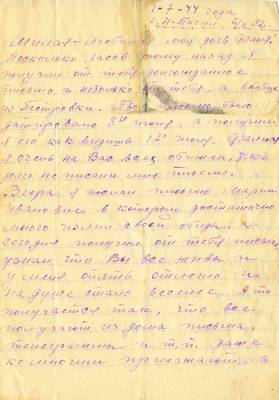 1-7-44 года
г. Н-Тагил п/я 92
Милая и любимая моя дочь Фрима!
Несколько часов тому назад я
получил от тебя долгожданное
письмо и не только от тебя, а вообще
из Петровки. Твое письмо было
датировано 8го июня, а получил
я его как видишь 1го июля. Фримочка
я очень на Вас всех обижен, так
долго не писали мне писем.
Вчера я послал письмо Марии
Ивановне в котором достаточно
много излил своей обиды,
сегодня получив от тебя письмо,
узнал что Вы все живы и
у меня опять отлегло и
на душе стало веселее. А то
получается так, что все
получают из дома письма,
телеграммы и т.п. даже
ко многим приезжают, а